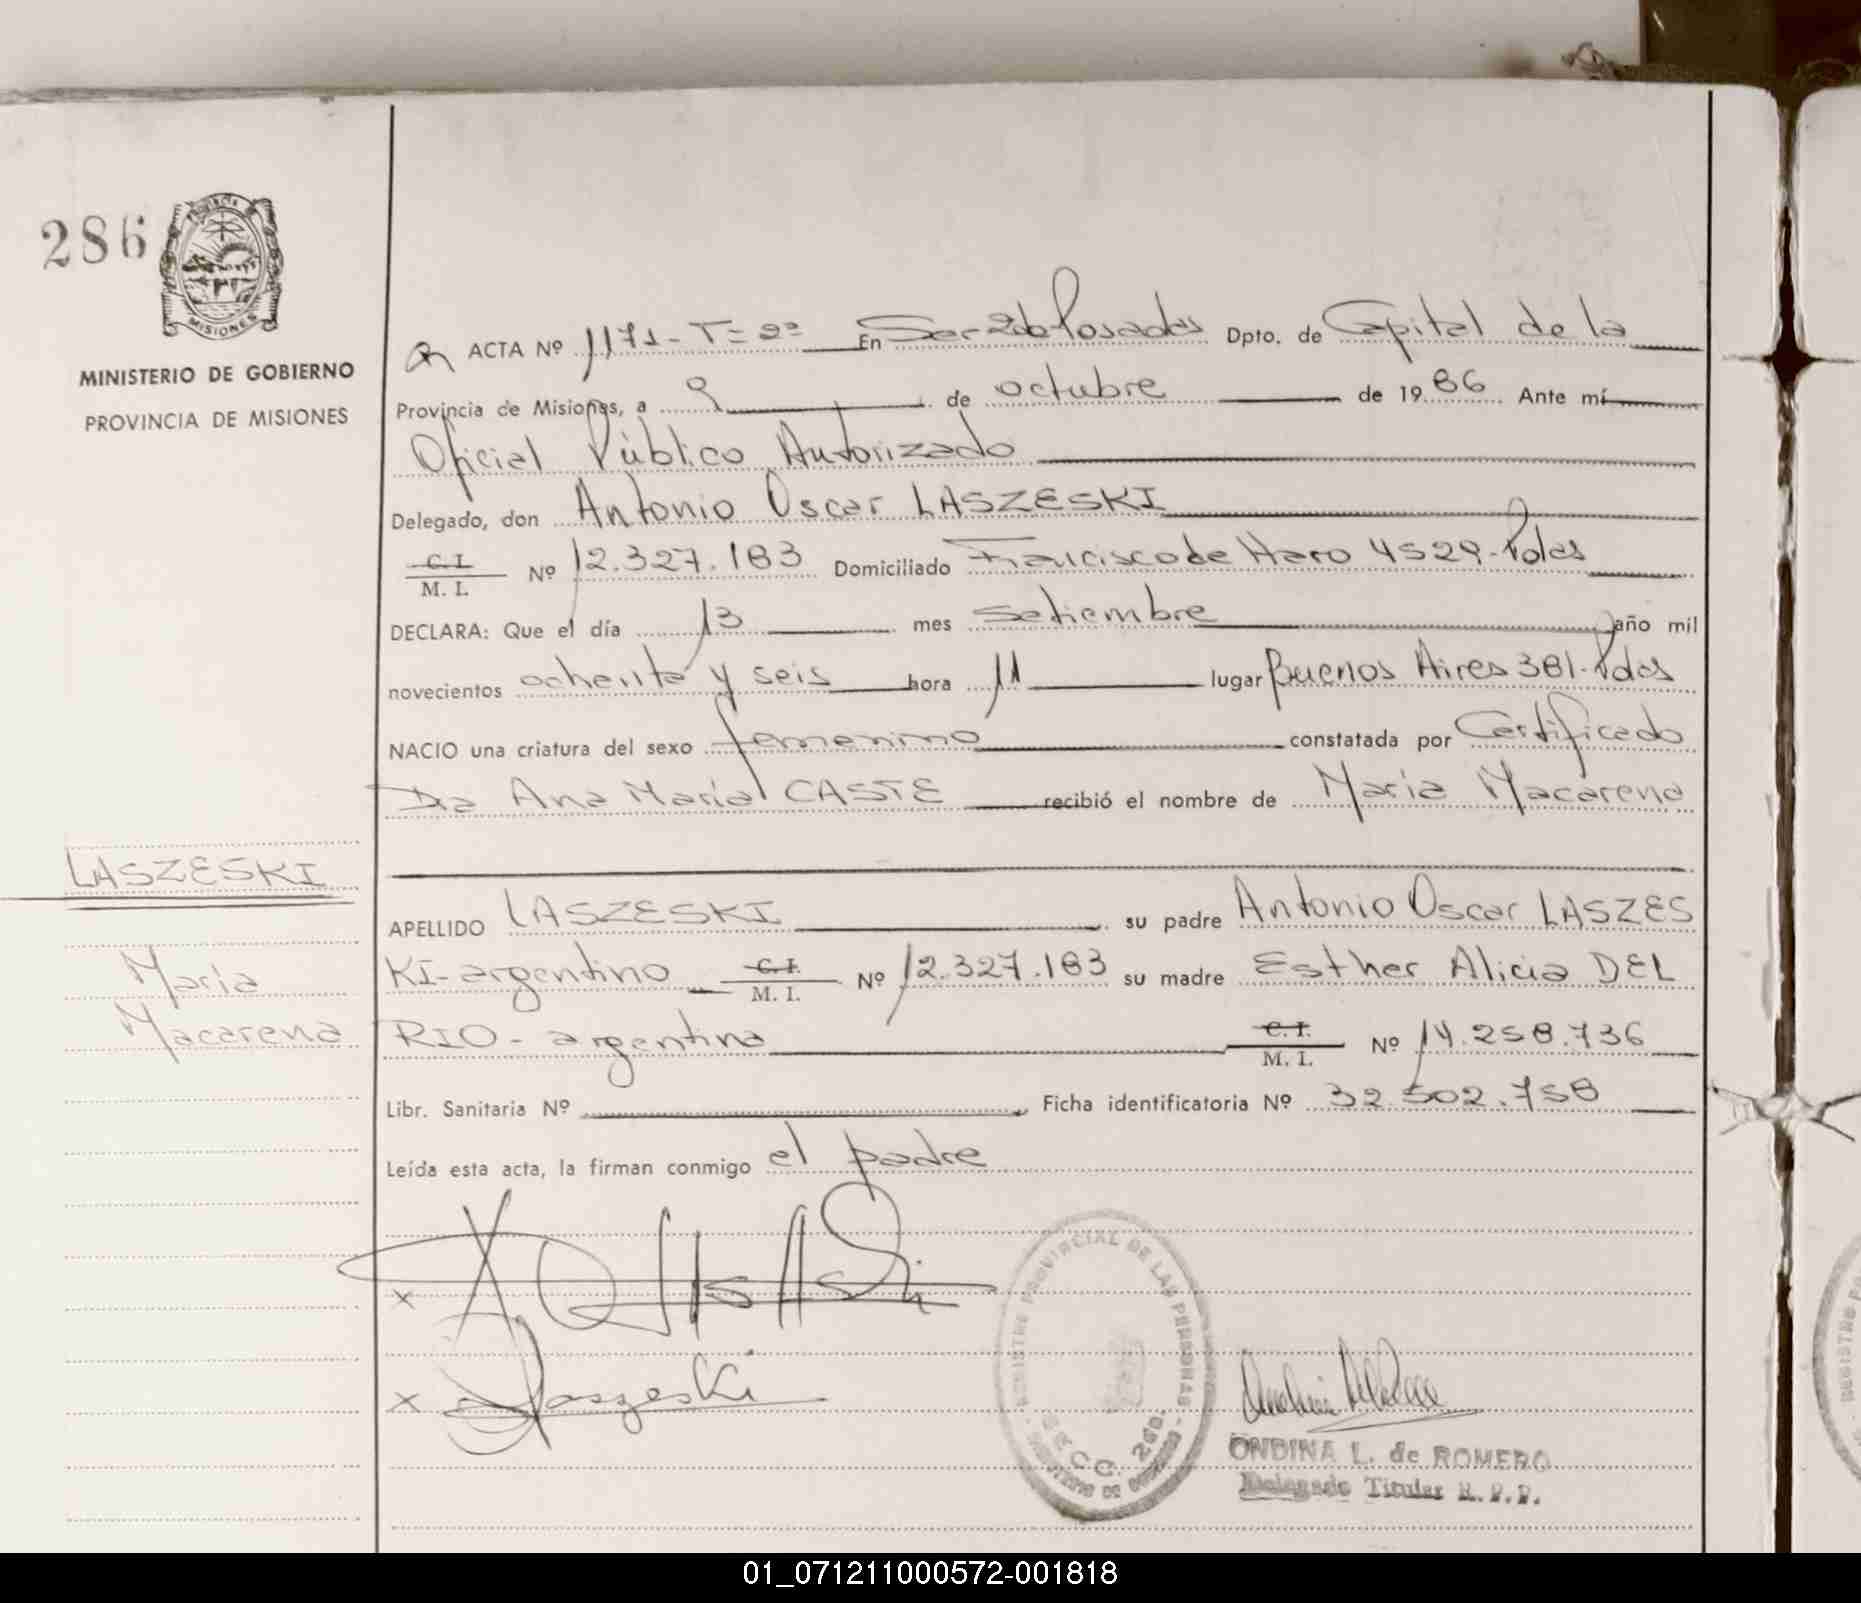 286
PROVINCIA DE
MISIONES
MINISTERIO DE GOBIERNO
PROVINCIA DE MISIONES
ACTA Nº 1171-T=2º En Sec 2da Posadas Dpto. de Capital de la
Provincia de Misiones, a 9 de octubre de 1986 Ante mí
Oficial Público Autorizado
Delegado, don Antonio Oscar LASZESKI
C.I. M. I. Nº 12.327.183 Domiciliado Francisco de Haro 4529-Pdas
DECLARA: Que el día 13 mes setiembre año mil
novecientos ochenta y seis hora 11 lugar Buenos Aires 381-Pdas
NACIO una criatura del sexo femenino constatada por Certificado
Dra Ana María CASTE recibió el nombre de María Macarena
LASZESKI
APELLIDO LASZESKI su padre Antonio Oscar LASZES
María
KI-argentino C.I. M. I. Nº 12.327.183 su madre Esther Alicia DEL
Macarena
RIO - argentina C.I. M. I. Nº 14.258.736
Libr. Sanitaria Nº Ficha identificatoria Nº 32.502.758
Leída esta acta, la firman conmigo el padre
x
x Laszeski
REGISTRO PROVINCIAL DE LAS PERSONAS
SECC. 2da.
MINISTERIO DE GOBIERNO
ONDINA L. de ROMERO
Delegado Titular R.P.P.
01_071211000572-001818